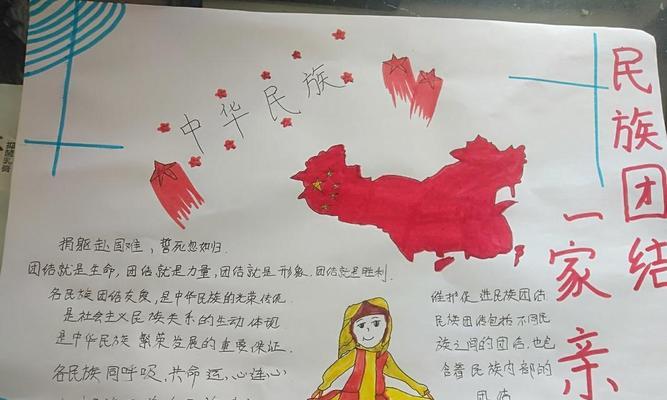 中华民族
民族团结
一家亲
捐躯赴国难，誓死忽如归.
团结就是生命，团结就是力量，团结就是形象.团结就是胜利.
各民族团结友爱，是中华民族的光荣传统
是社会主义民族关系的生动体现
是中华民族繁荣发展的重要保证.
各民族同呼吸，共命运，心连心
维护促进民族团结
民族团结包括不同民
族之间的团结，也包
含着民族内部的
团结